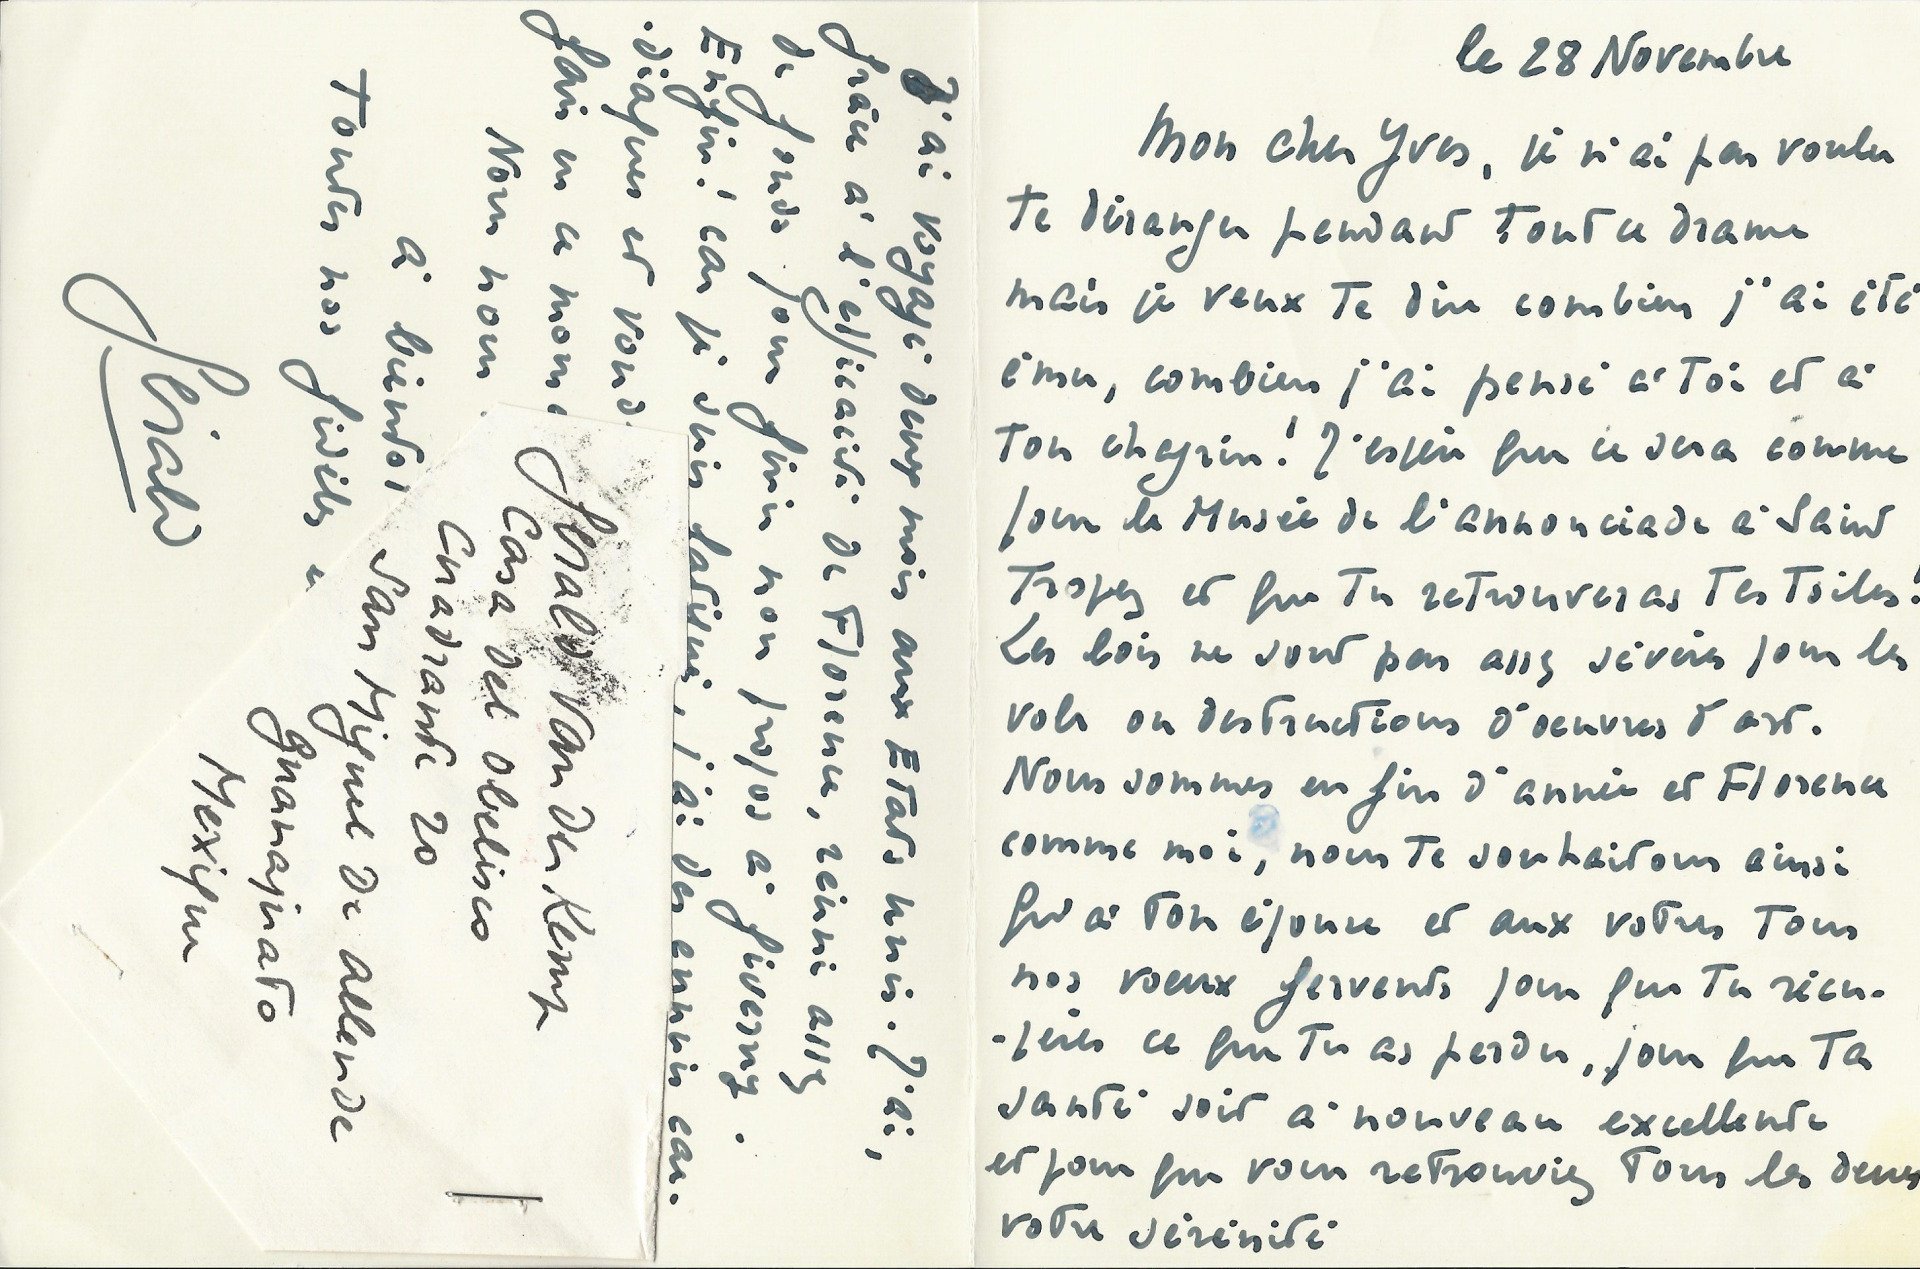 le 28 Novembre
Mon cher Yves, je n'ai pas voulu
te déranger pendant tout ce drame
mais je veux te dire combien j'ai été
ému, combien j'ai pensé à toi et à
ton chagrin! J'espère que ce sera comme
pour le Musée de l'annonciade à Saint
Tropez et que tu retrouveras tes toiles!
Les lois ne sont pas assez sévères pour les
vols ou destructions d'oeuvres d'art.
Nous sommes en fin d'année et Florence
comme moi, nous te souhaitons ainsi
qu'à ton épouse et aux votres tous
nos voeux fervents pour que tu récu-
-pères ce que tu as perdu, pour que ta
santé soit à nouveau excellente
et pour que vous retrouviez tous les deux
votre sérénité
J'ai voyagé deux mois aux Etats Unis. J'ai,
grâce à l'efficacité de Florence, réuni assez
de fonds pour finir non propos à Giverny.
Enfin! car je suis fatigué, j'ai des ennuis car-
-diaques et voud
fais en ce mome
Nous nous
à bientôt
Toutes nos fidèles a
Gérald
Gérald Van der Kemp
Casa del obelisco
Cuadrante 20
San Miguel de allende
guanajuato
Mexique